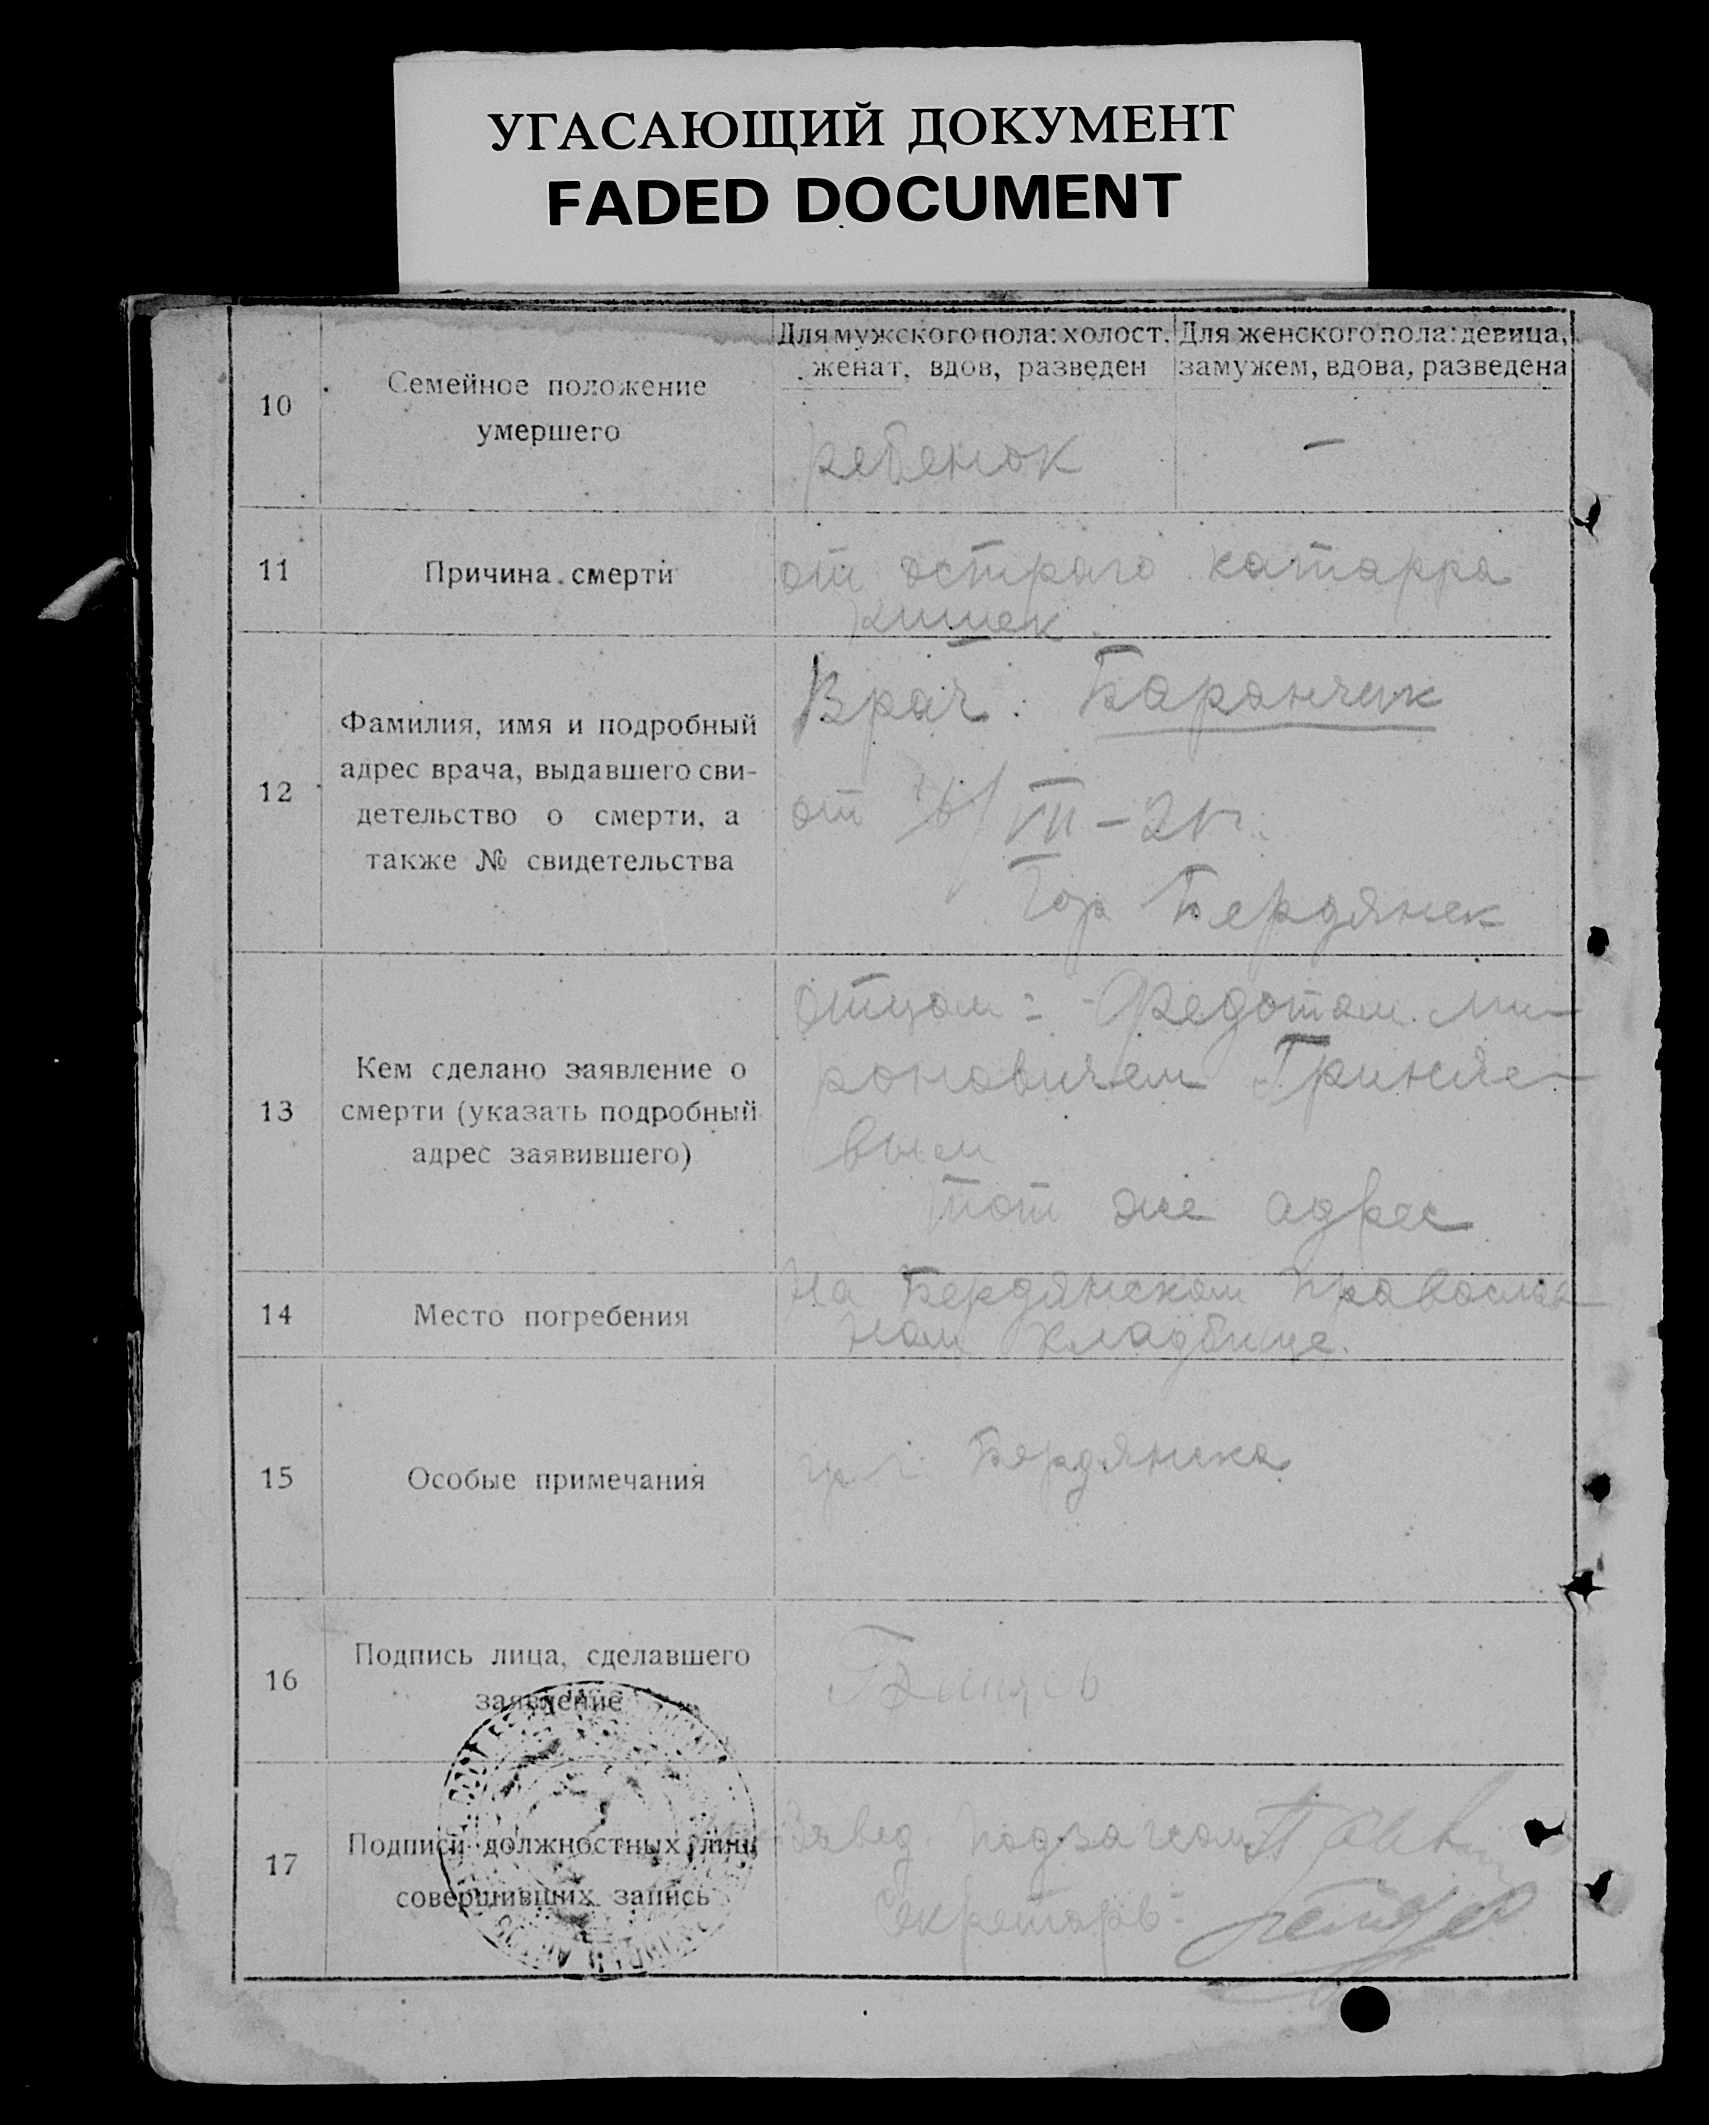 УГАСАЮЩИЙ ДОКУМЕНТ
FADED DOCUMENT
10
Семейное положение
умершего
Для мужского пола: холост,
женат, вдов, разведен
Для женского пола: девица,
замужем, вдова, разведена
ребенок
—
11
Причина смерти
от остраго катарра
кишек
12
Фамилия, имя и подробный
адрес врача, выдавшего сви-
детельство о смерти, а
также № свидетельства
Врач: Баранчик
от VII – 21 г.
Гор Бердянск
13
Кем сделано заявление о
смерти (указать подробный
адрес заявившего)
Отцом: - Федотом Ми-
роновичем Гриняе-
вым
тот же адрес
14
Место погребения
На Бердянском православ-
ном кладбище.
15
Особые примечания
гр. г. Бердянска
16
Подпись лица, сделавшего
заявление
17
Подписи должностных лиц
совершивших запись
Завед. Подзагсом
Секретарь -